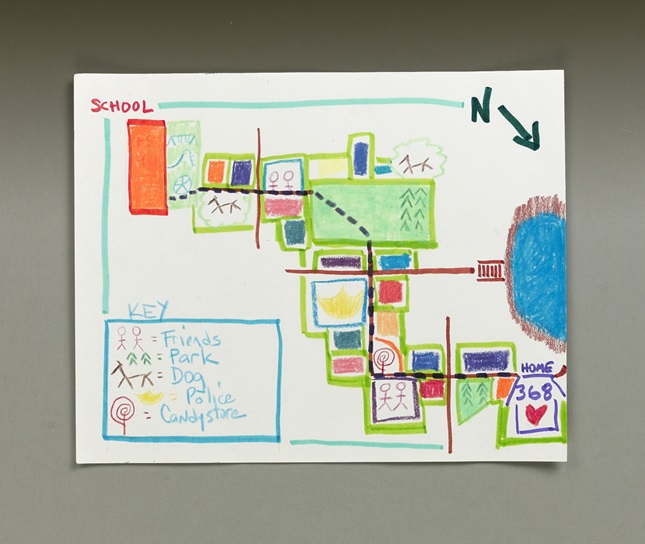 SCHOOL
N
KEY
= Friends
= Park
= Dog
= Police
= Candystore
HOME
368